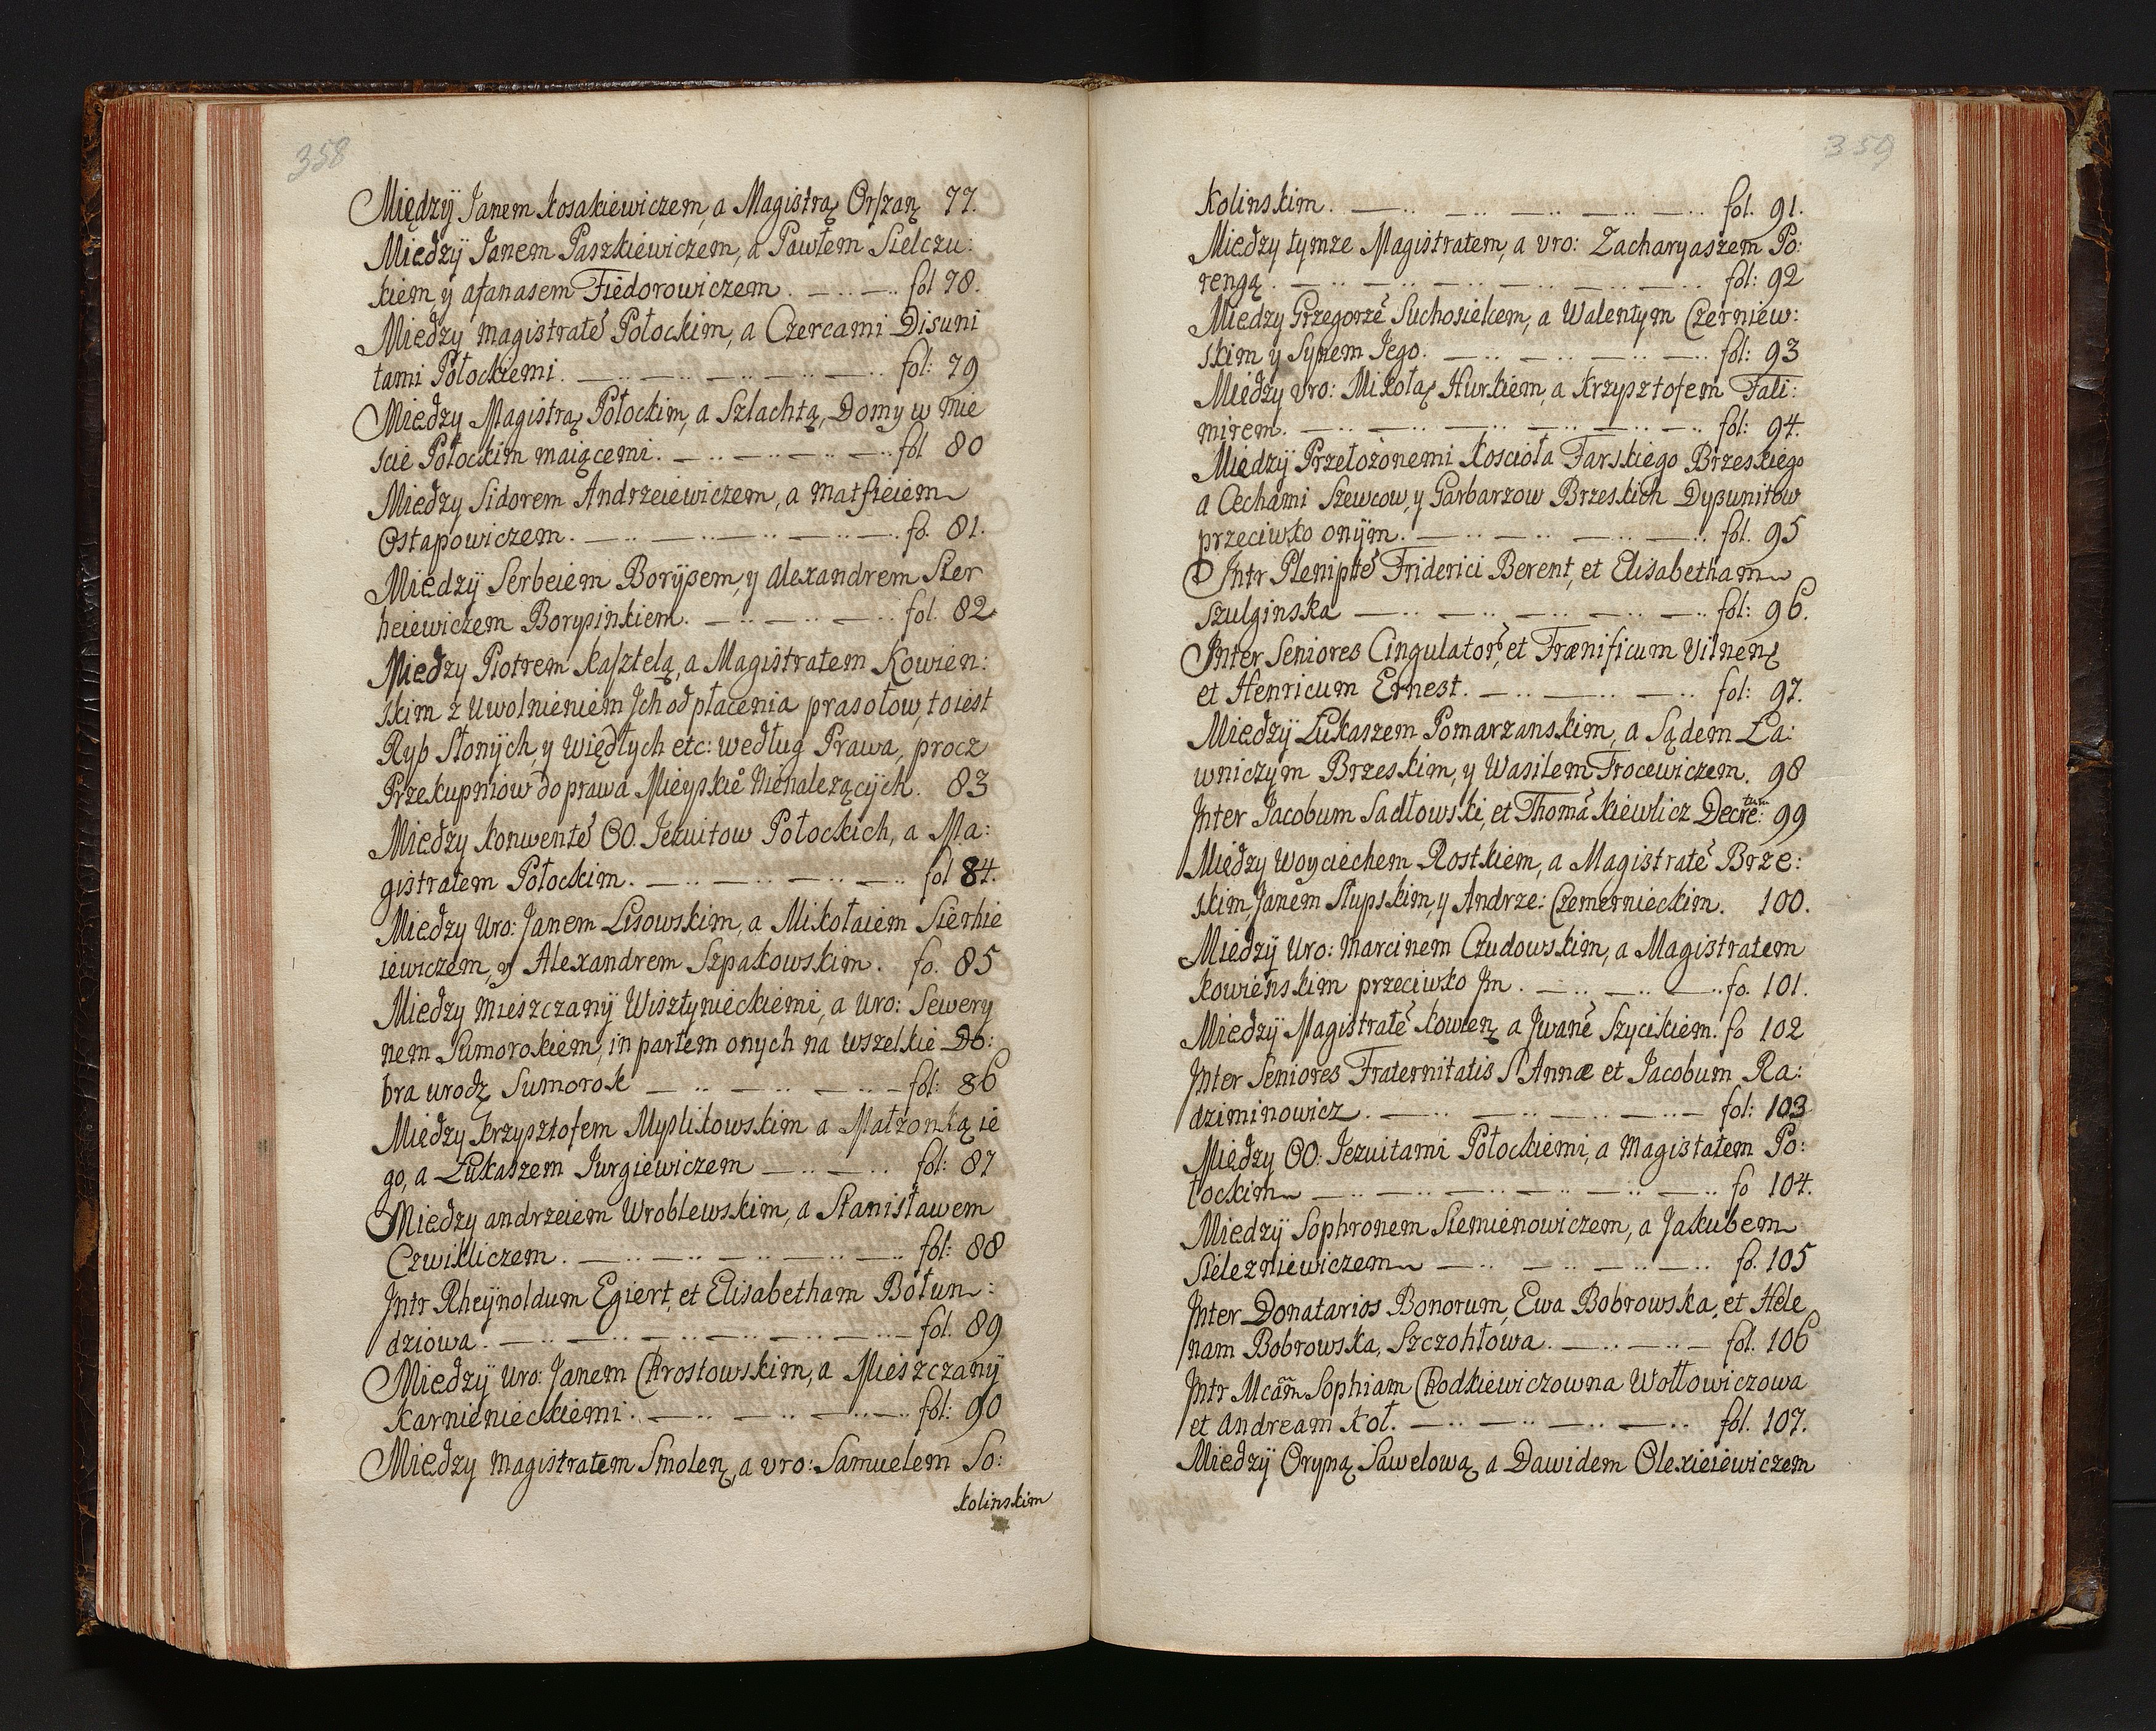 358
Między Janem Kosakiewiczem, a Magistrą Orszań 77.
Między Janem Paszkiewiczem, a Pawłem Sielczu:
kiem, y afanasem Fiedorowiczem. fol 78.
Między magistratē Połockim, a Czercami Disuni
tami Połockiemi. fol: 79
Między Magistrą Połockim, a Szlachtą, Domy w Mie
scie Połockim maiącemi. fol 80
Między Sidorem Andrzeiewiczem, a Matfieiem
Ostapowiczem. fo. 81.
Między Serbeiem Boryßem, y Alexandrem Sier
heiewiczem Boryßinkiem. fol. 82
Między Piotrem Kasztelą, a Magistratem Kowien:
skim z Uwolnieniem Ich od płacenia prasołow, to iest
Ryb Słonych, y więdłych etc: według Prawa, procz
Przekupniow do prawa Mieyskie͡o Nienalezących. 83
Między Konwentē OO. Jezuitow Połockich, a Ma:
gistratem Połockim. fol 84.
Między Uro: Janem Lisowskim, a Mikołaiem Sierhie
iewiczem, y Alexandrem Szpakowskim. fo. 85
Między Mieszczany Wisztynieckiemi, a Uro: Sewery
nem Sumorokiem, in partem onych na wszelkie Do:
bra urodz Sumorok fol: 86
Między Krzysztofem Myßlikowskim a Małzonką ie
go, a Łukaszem Jurgiewiczem fol: 87
Między andrzeiem Wroblewskim, a Stanisławem
Czwikliczem. fol: 88
Intr Rheynoldum Egiert, et Elisabetham Bołun:
dziowa. fol. 89
Między Uro: Janem Chrostowskim, a Mieszczany
Karnienieckiemi. fol: 90
Między magistratem Smolen, a Uro: Samuelem So:
kolinskim
359
Kolinskim. fol. 91.
Między tymze Magistratem, a Uro: Zacharyaszem Po:
rengą. fol: 92
Między Grzegorzē Suchosielcem, a Walentym Czerniew:
skim y Synem Jego. fol: 93
Między Uro: Mikołą Hurkiem, a Krzysztofem Fali:
mirem. fol: 94.
Między Przełożonemi Kościoła Farskiego Brzeskiego
a Cechami Szewcow, y Garbarzow Brzeskich Dyßunitow
przeciwko onym. fol. 95
Intr Plenipttē Friderici Berent, et Elisabetham
Szulginska fol: 96.
Inter Seniores Cingulatoř, et Frænificum Vilnen
et Henricum Ernest. fol: 97.
Między Łukaszem Pomarzanskim, a Sądem Ła:
wniczym Brzeskim, y Wasilem Trocewiczem. 98
Inter Jacobum Sadłowski, et Thomā Kiewlicz Decre:tum 99
Między Woyciechem Rostkiem, a Magistratē Brze:
skim Janem Słupskim, y Andrze: Czemernieckim. 100.
Między Uro: Marcinem Czudowskim, a Magistratem
Kowienskim przeciwko Im. fo. 101.
Między Magistratē Kowien a Iwanē Szycikiem. fo 102
Inter Seniores Fraternitatis S Annæ et Jacobum Ra:
dziminowicz. fol: 103
Między OO: Jezuitami Połockiemi, a Magistatem Po:
łockim fo 104.
Między Sophronem Siemienowiczem, a Jakubem
Sielezniewiczem fo. 105
Inter Donatarios Bonorum, Ewa Bobrowska, et Hele
nam Bobrowska, Szczohłowa. fol. 106
Intr Mcam̄ Sophiam Chodkiewiczowna Wołłowiczowa
et Andream Koł. fol. 107.
Między Orypą Sawelową, a Dawidem Olexieiewiczem